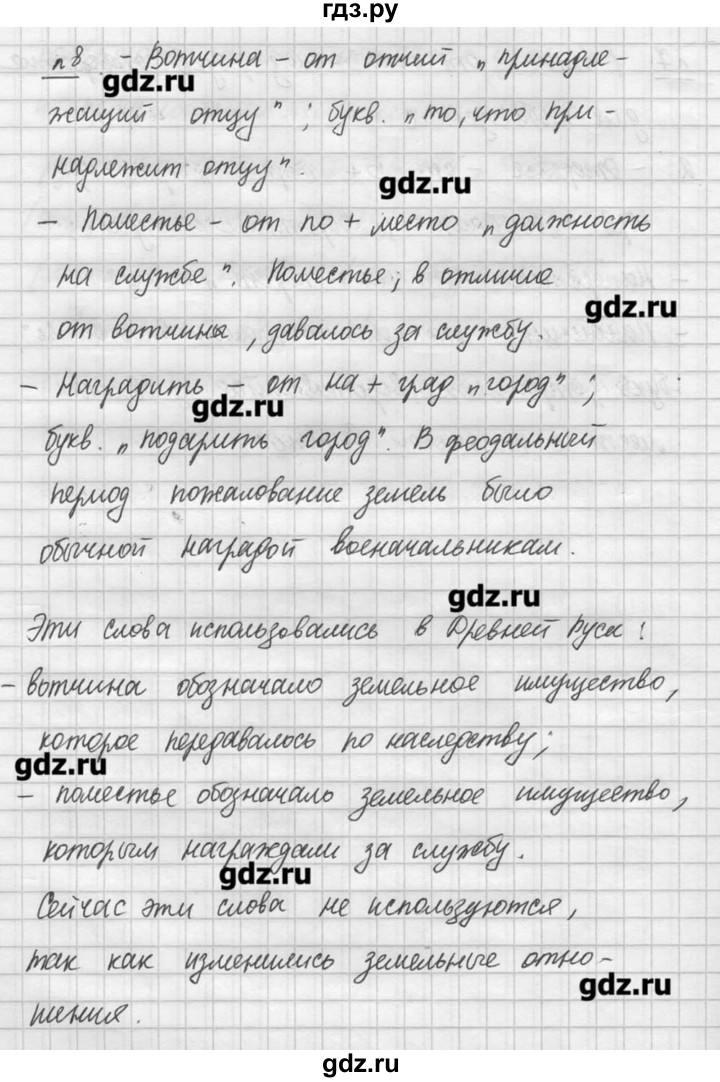 гдз.ру
п 8 - Вотчина - от отчий „принадле-
gdz.ru
жащий отцу"; букв. „то, что при-
надлежит отцу".
gdz.ru
- Поместье - от по + место „должность
на службе". Поместье, в отличие
gdz.ru
от вотчины, давалось за службу.
- Наградить - от на + град „город";
gdz.ru
букв. „подарить город". В феодальный
период пожалование земель было
обычной наградой военачальникам.
gdz.ru
Эти слова использовались в Древней Руси:
- вотчина обозначало земельное имущество,
которое передавалось по наследству;
gdz.ru
- поместье обозначало земельное имущество,
которым награждали за службу.
gdz.ru
Сейчас эти слова не используются,
так как изменились земельные отно-
gdz.ru
шения.
gdz.ru